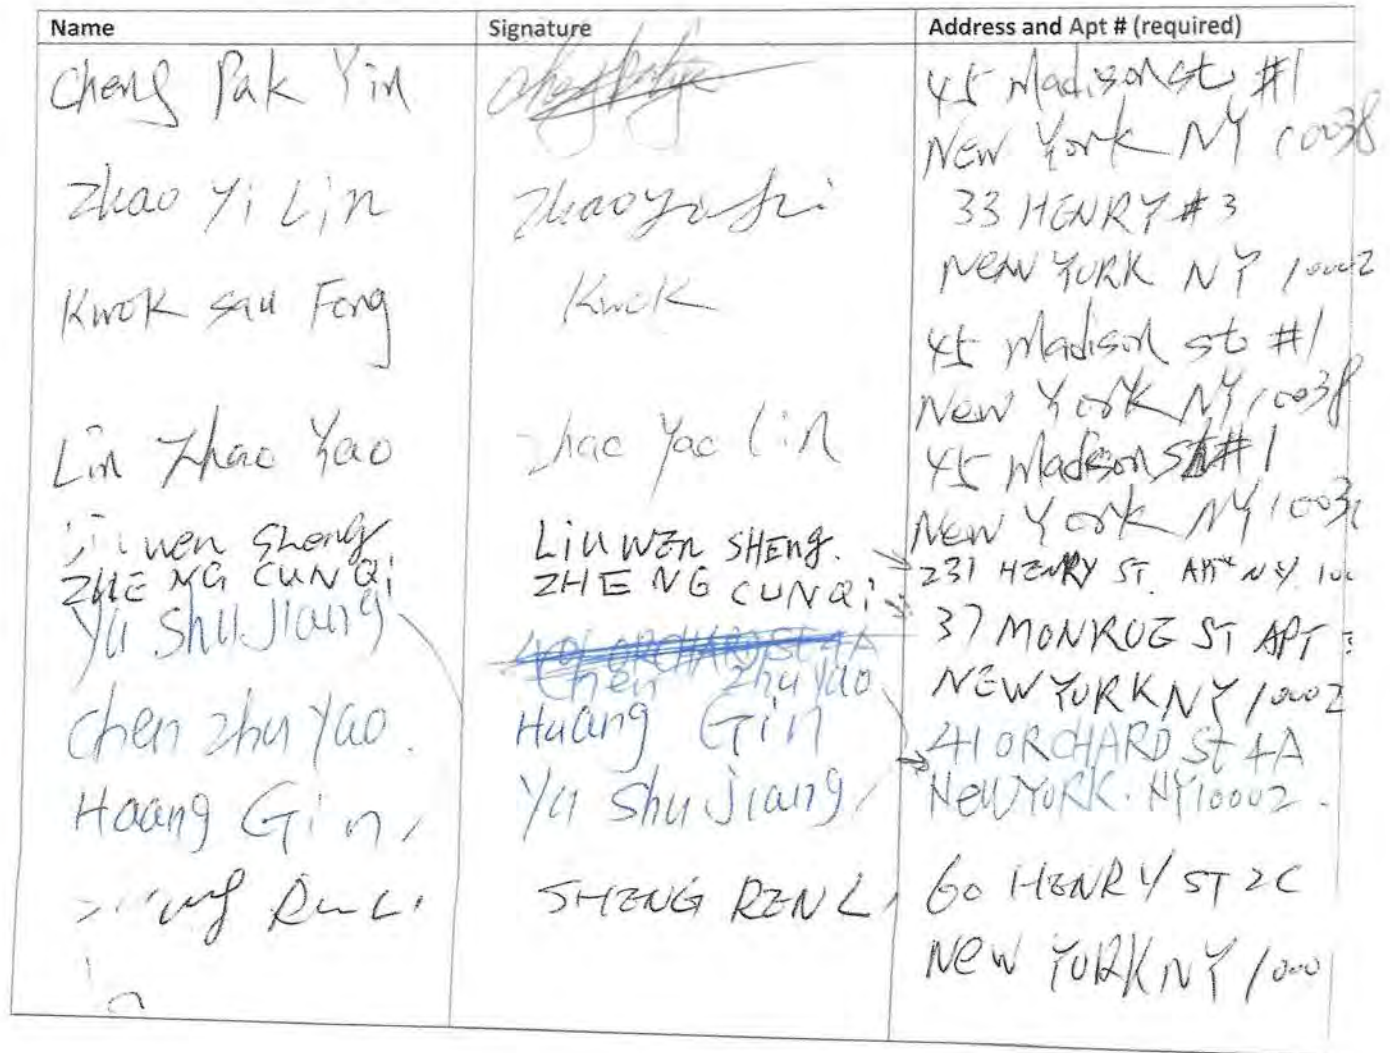 Name Signature Address and Apt # (required)
Cheng Pak Yin 45 Madison st #1
New York NY 10038
Zhao Yi Lin 33 HENRY #3
NEW YORK NY 10002
Kwok Sau Fong Kwok 45 Madison st #1
New York NY 10038
Lin Zhao Yao Zhao Yao Lin 45 Madison st #1
New York NY 1003
wen Sheng LIU WEN SHENG. 231 HENRY ST. APT NY 100
ZHENG CUN Qi ZHENG CUN Qi 37 MONROE ST APT
Yu Shu Jiang 40 ORCHARD ST 4A
Chen Zhu Yao NEW YORK NY 10002
Chen Zhu Yao. Huang Gin 41 ORCHARD St 4A
Haang Gin, Yu Shu Jiang, NEW YORK. NY 10002.
SHENG REN L 60 HENRY ST 2C
NEW YORK NY 1000